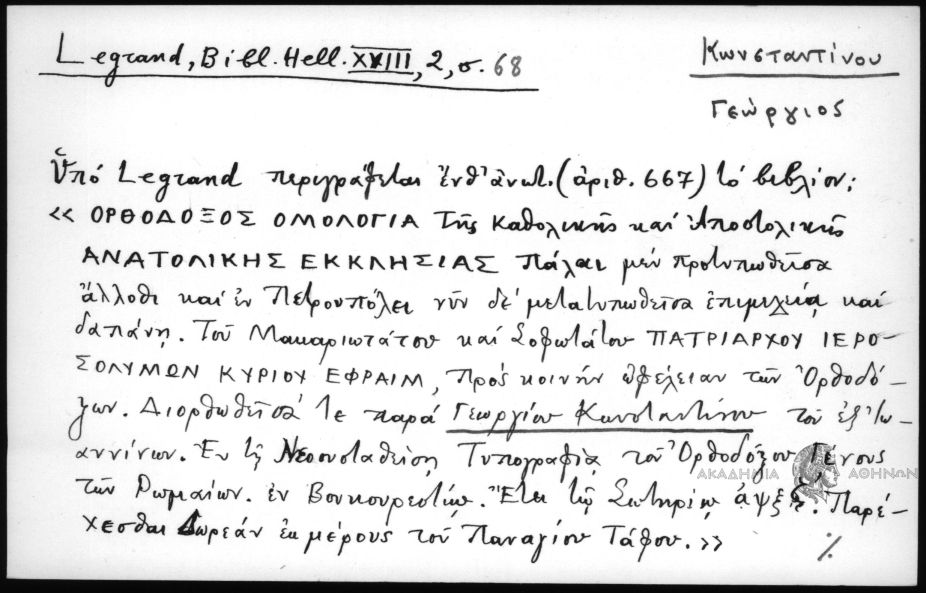 Legrand, Bibl. Hell. XVIII, 2, σ. 68
Κωνσταντίνου
Γεώργιος
Ὑπό Legrand περιγράφεται ἔνθ' ἀνωτ. (ἀριθ. 667) τό βιβλίον:
«ΟΡΘΟΔΟΞΟΣ ΟΜΟΛΟΓΙΑ τῆς Καθολικῆς καί Ἀποστολικῆς
ΑΝΑΤΟΛΙΚΗΣ ΕΚΚΛΗΣΙΑΣ πάλαι μέν προτυπωθεῖσα
ἄλλοθι καί ἐν Πετρουπόλει νῦν δέ μετατυπωθεῖσα ἐπιμελείᾳ καί
δαπάνῃ. Τοῦ Μακαριωτάτου καί Σοφωτάτου ΠΑΤΡΙΑΡΧΟΥ ΙΕΡΟ-
ΣΟΛΥΜΩΝ ΚΥΡΙΟΥ ΕΦΡΑΙΜ, πρός κοινήν ὠφέλειαν τῶν Ὀρθοδό-
ξων. Διορθωθεῖσά τε παρά Γεωργίου Κωνσταντίνου τοῦ ἐξ Ἰω-
αννίνων. Ἐν τῇ Νεοσυσταθείσῃ Τυπογραφίᾳ τοῦ Ὀρθοδόξου Γένους
ΑΚΑΔΗΜΙΑ ΑΘΗΝΩΝ
τῶν Ρωμαίων. ἐν Βουκουρεστίῳ. Ἔτει τῷ Σωτηρίῳ ͵αψξ. Παρέ-
χεσθαι Δωρεάν ἐκ μέρους τοῦ Παναγίου Τάφου.»
./.